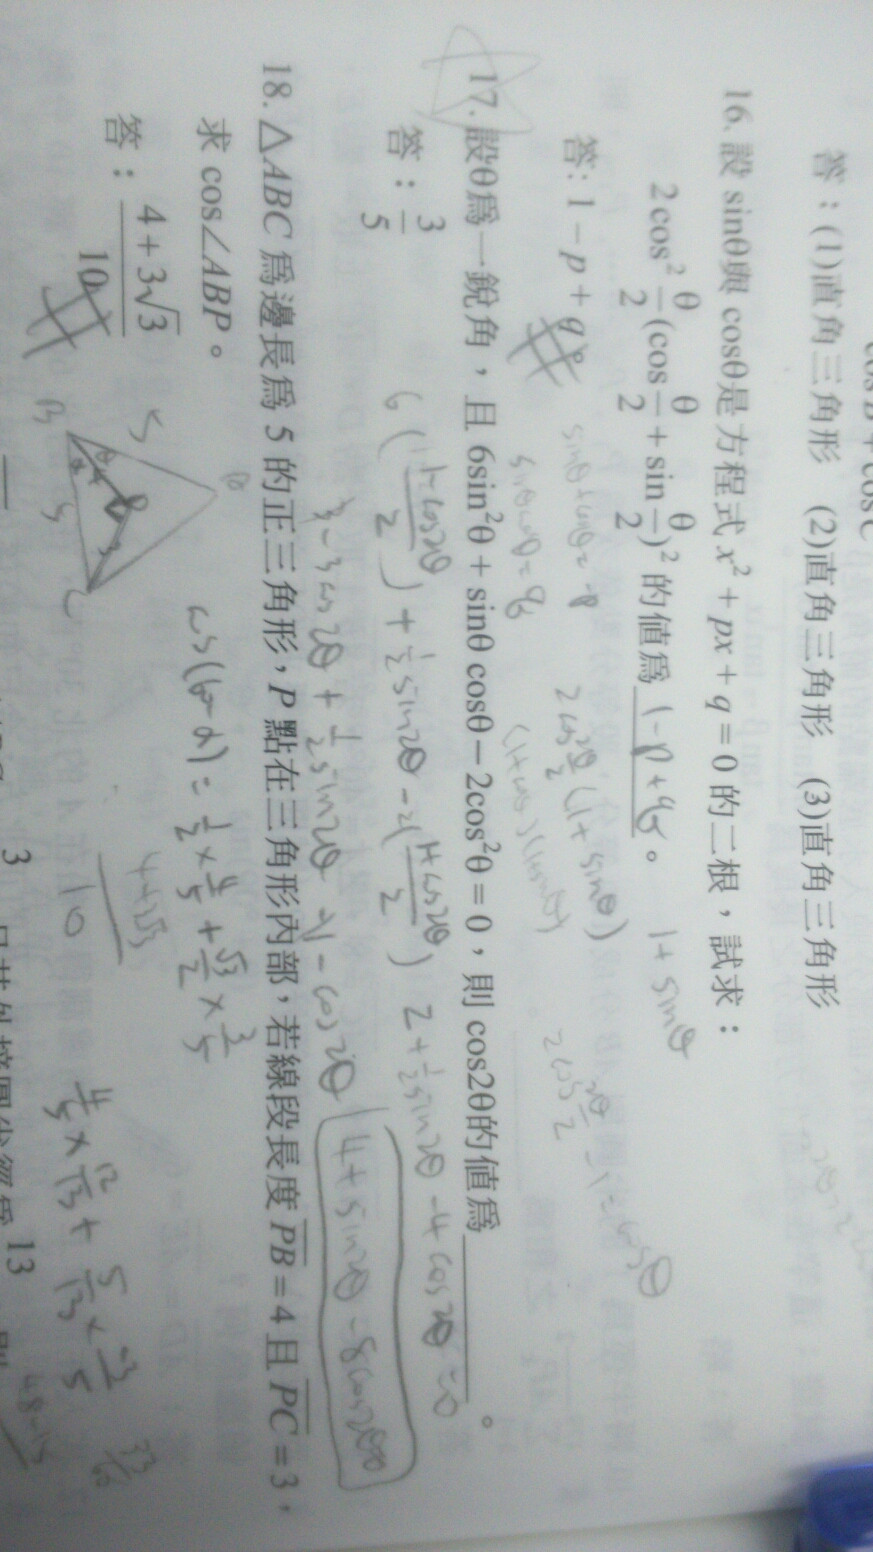 答：(1)直角三角形　(2)直角三角形　(3)直角三角形
16. 設 sinθ與 cosθ是方程式 x² + px + q = 0 的二根，試求：
2cos²θ/2(cosθ/2 + sinθ/2)² 的值為 1-p+q 。
1 + sinθ
答: 1 − p + q。
sinθ+cosθ = -p
sinθcosθ = q
2cos²θ/2 (1+sinθ)
(1+cosθ)(1+sinθ)
2cos²θ/2 - 1 = cosθ
17. 設θ為一銳角，且 6sin²θ + sinθ cosθ − 2cos²θ = 0，則 cos2θ的值為 。
答：3/5
6(1-cos2θ/2) + 1/2 sin2θ - 2(1+cos2θ/2)
2 + 1/2 sin2θ - 4cos2θ = 0
3 - 3cos2θ + 1/2 sin2θ - 1 - cos2θ
4 + sin2θ - 8cos2θ=0
18. △ABC 為邊長為 5 的正三角形，P 點在三角形內部，若線段長度 PB = 4 且 PC = 3，
求 cos∠ABP。
cos(60-α) = 1/2 × 4/5 + √3/2 × 3/5
答：4 + 3√3/10
B
5
C
5
10
4/5 × 12/13 + 5/13 × -3/5
48-15
33/65
3
13